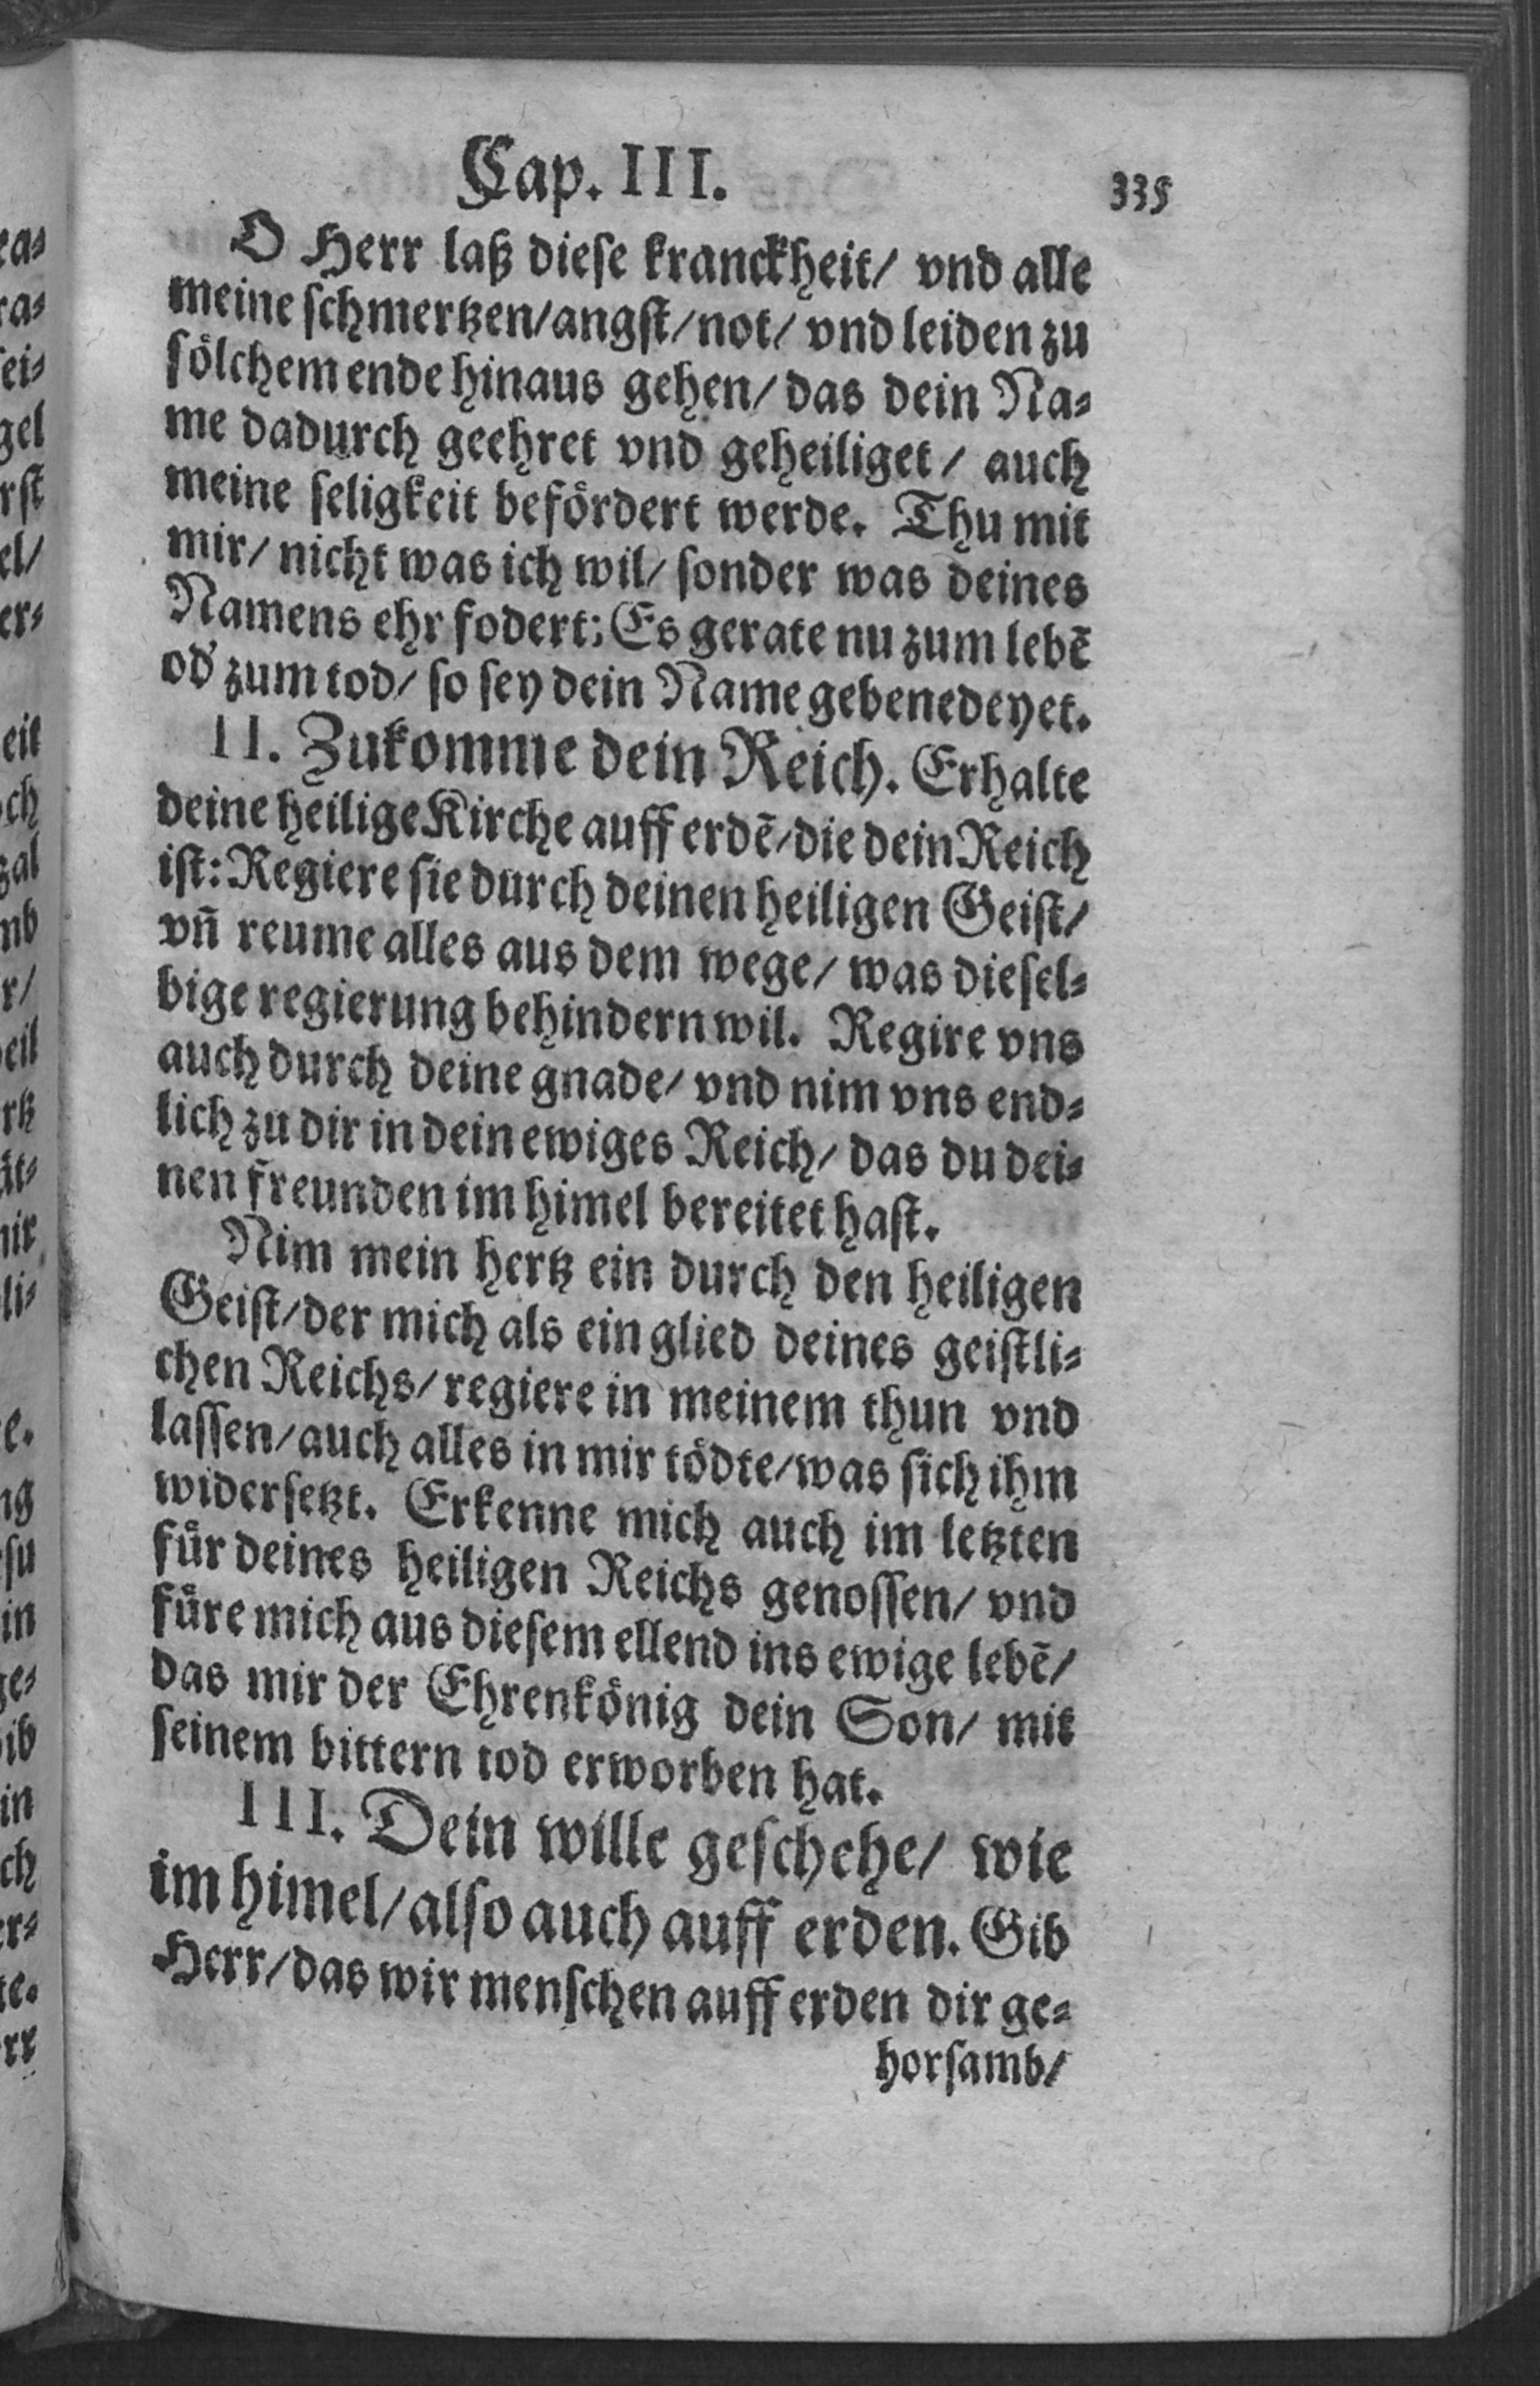 Cap. III. 335
O Herr laß dieſe kranckheit/ vnd alle
meine ſchmertzen/angſt/not/ vnd leiden zu
ſölchem ende hinaus gehen/ das dein Na⸗
me dadurch geehret vnd geheiliget/ auch
meine ſeligkeit befördert werde. Thu mit
mir/ nicht was ich wil/ ſonder was deines
Namens ehr fodert; Es gerate nu zum lebē
od' zum tod/ ſo ſey dein Name gebenedeyet.
II. Zukomme dein Reich. Erhalte
deine heilige Kirche auff erdē/die dein Reich
iſt: Regiere ſie durch deinen heiligen Geiſt/
vn̄ reume alles aus dem wege/ was dieſel⸗
bige regierung behindern wil. Regire vns
auch durch deine gnade/ vnd nim vns end⸗
lich zu dir in dein ewiges Reich/ das du dei⸗
nen freunden im himel bereitet haſt.
Nim mein hertz ein durch den heiligen
Geiſt/der mich als ein glied deines geiſtli⸗
chen Reichs/ regiere in meinem thun vnd
laſſen/auch alles in mir tödte/was ſich ihm
widerſetzt. Erkenne mich auch im letzten
für deines heiligen Reichs genoſſen/ vnd
füre mich aus dieſem ellend ins ewige lebē/
das mir der Ehrenkönig dein Son/ mit
ſeinem bittern tod erworben hat.
III. Dein wille geſchehe/ wie
im himel/alſo auch auff erden. Gib
Herr/das wir menſchen auff erden dir ge⸗
horſamb/